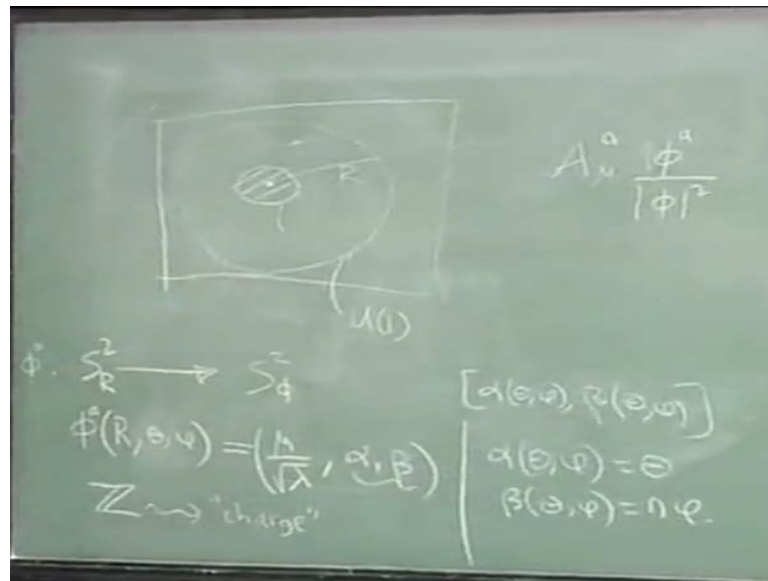 R
U(1)
A_μ^a ϕ^a / |ϕ|^2
ϕ^a: S^2_R ⟶ S^2_ϕ
ϕ^a(R, θ, φ) = (μ/√λ, α, β)
ℤ ⇝ "charge"
[α(θ,φ), β(θ,φ)]
α(θ,φ) = θ
β(θ,φ) = nφ